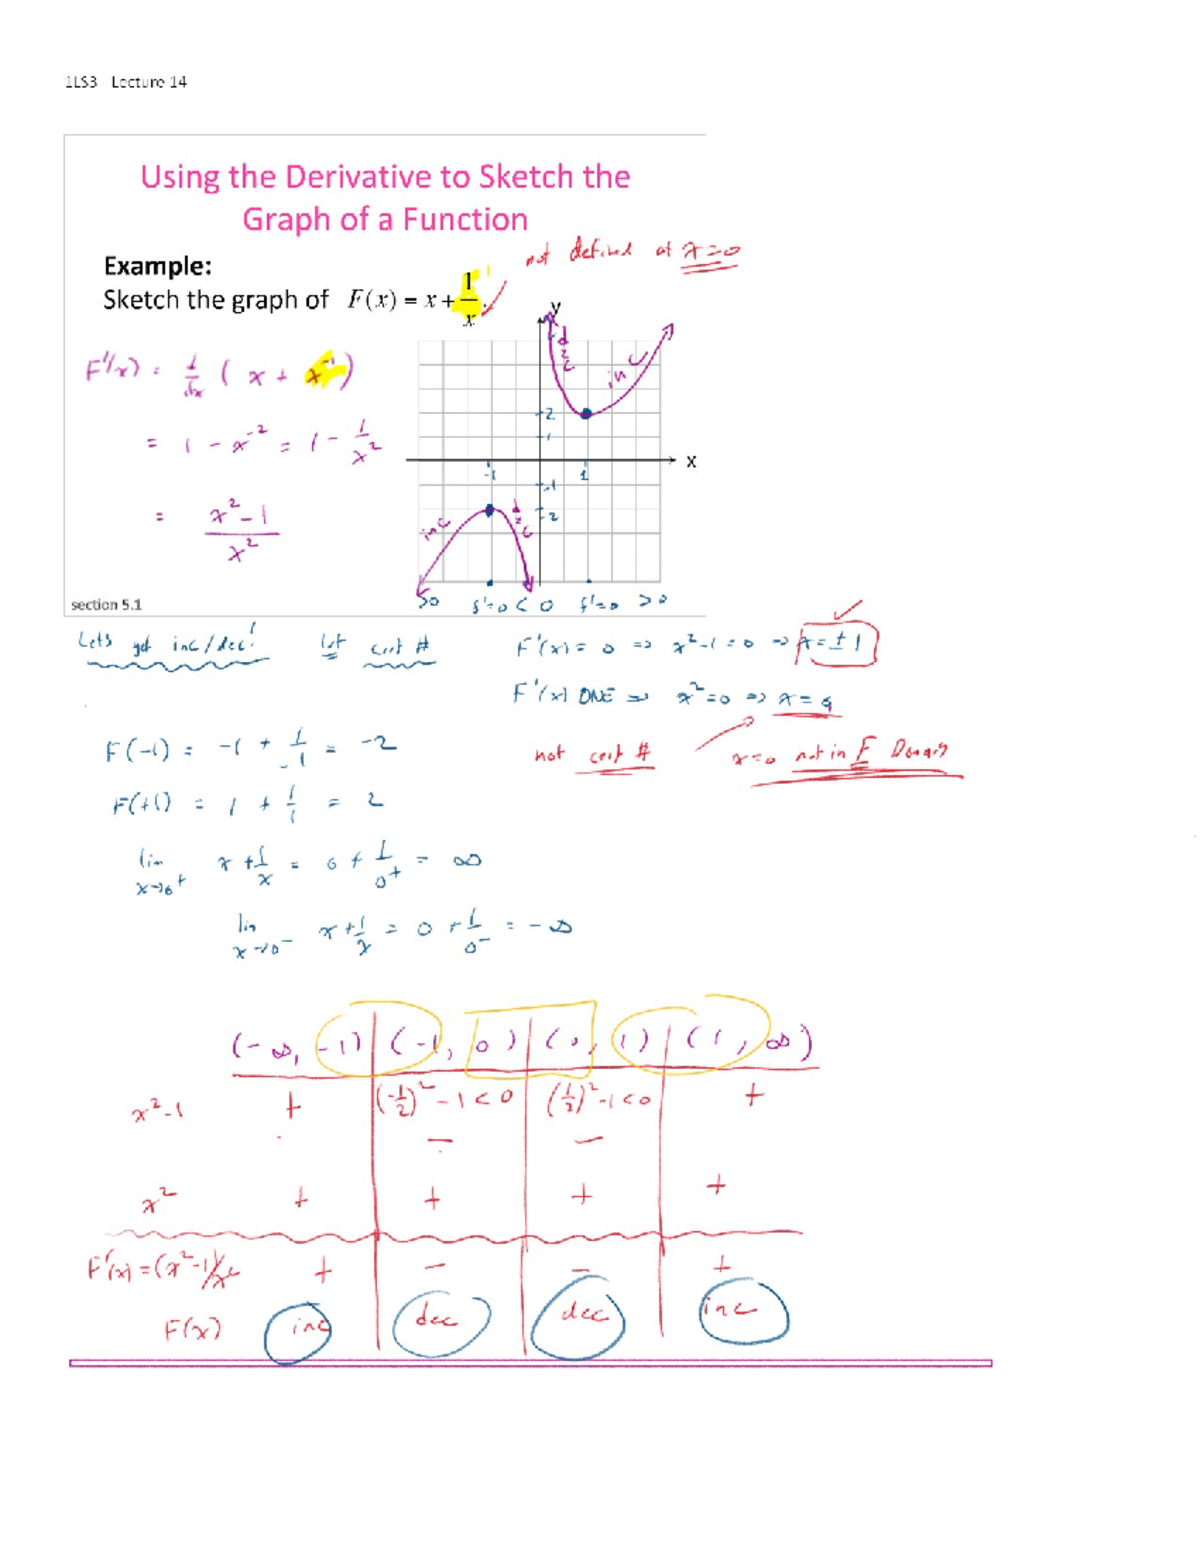 1LS3 Lecture 14
Using the Derivative to Sketch the
Graph of a Function
not defined at x=0
Example:
Sketch the graph of F(x) = x + 1/x.
F'(x) = d/dx ( x + x⁻¹ )
= 1 - x⁻² = 1 - 1/x²
= x² - 1 / x²
y
dec
inc
2
1
x
-1
1
-1
-2
inc
dec
section 5.1
>0 f'=0 < 0 f'=0 >0
Lets get inc/dec! 1st crit #
F'(x) = 0 => x²-1 = 0 => x = ±1
F'(x) DNE => x² = 0 => x = 0
not crit # x=0 not in F Domain
F(-1) = -1 + 1/-1 = -2
F(+1) = 1 + 1/1 = 2
lim x→0⁺ x + 1/x = 0 + 1/0⁺ = ∞
lim x→0⁻ x + 1/x = 0 + 1/0⁻ = -∞
(-∞, -1) (-1, 0) (0, 1) (1, ∞)
x²-1 + (-1/2)² - 1 < 0 (1/2)² - 1 < 0 +
- -
x² + + + +
F'(x) = (x²-1)/x² + - - +
F(x) inc dec dec inc